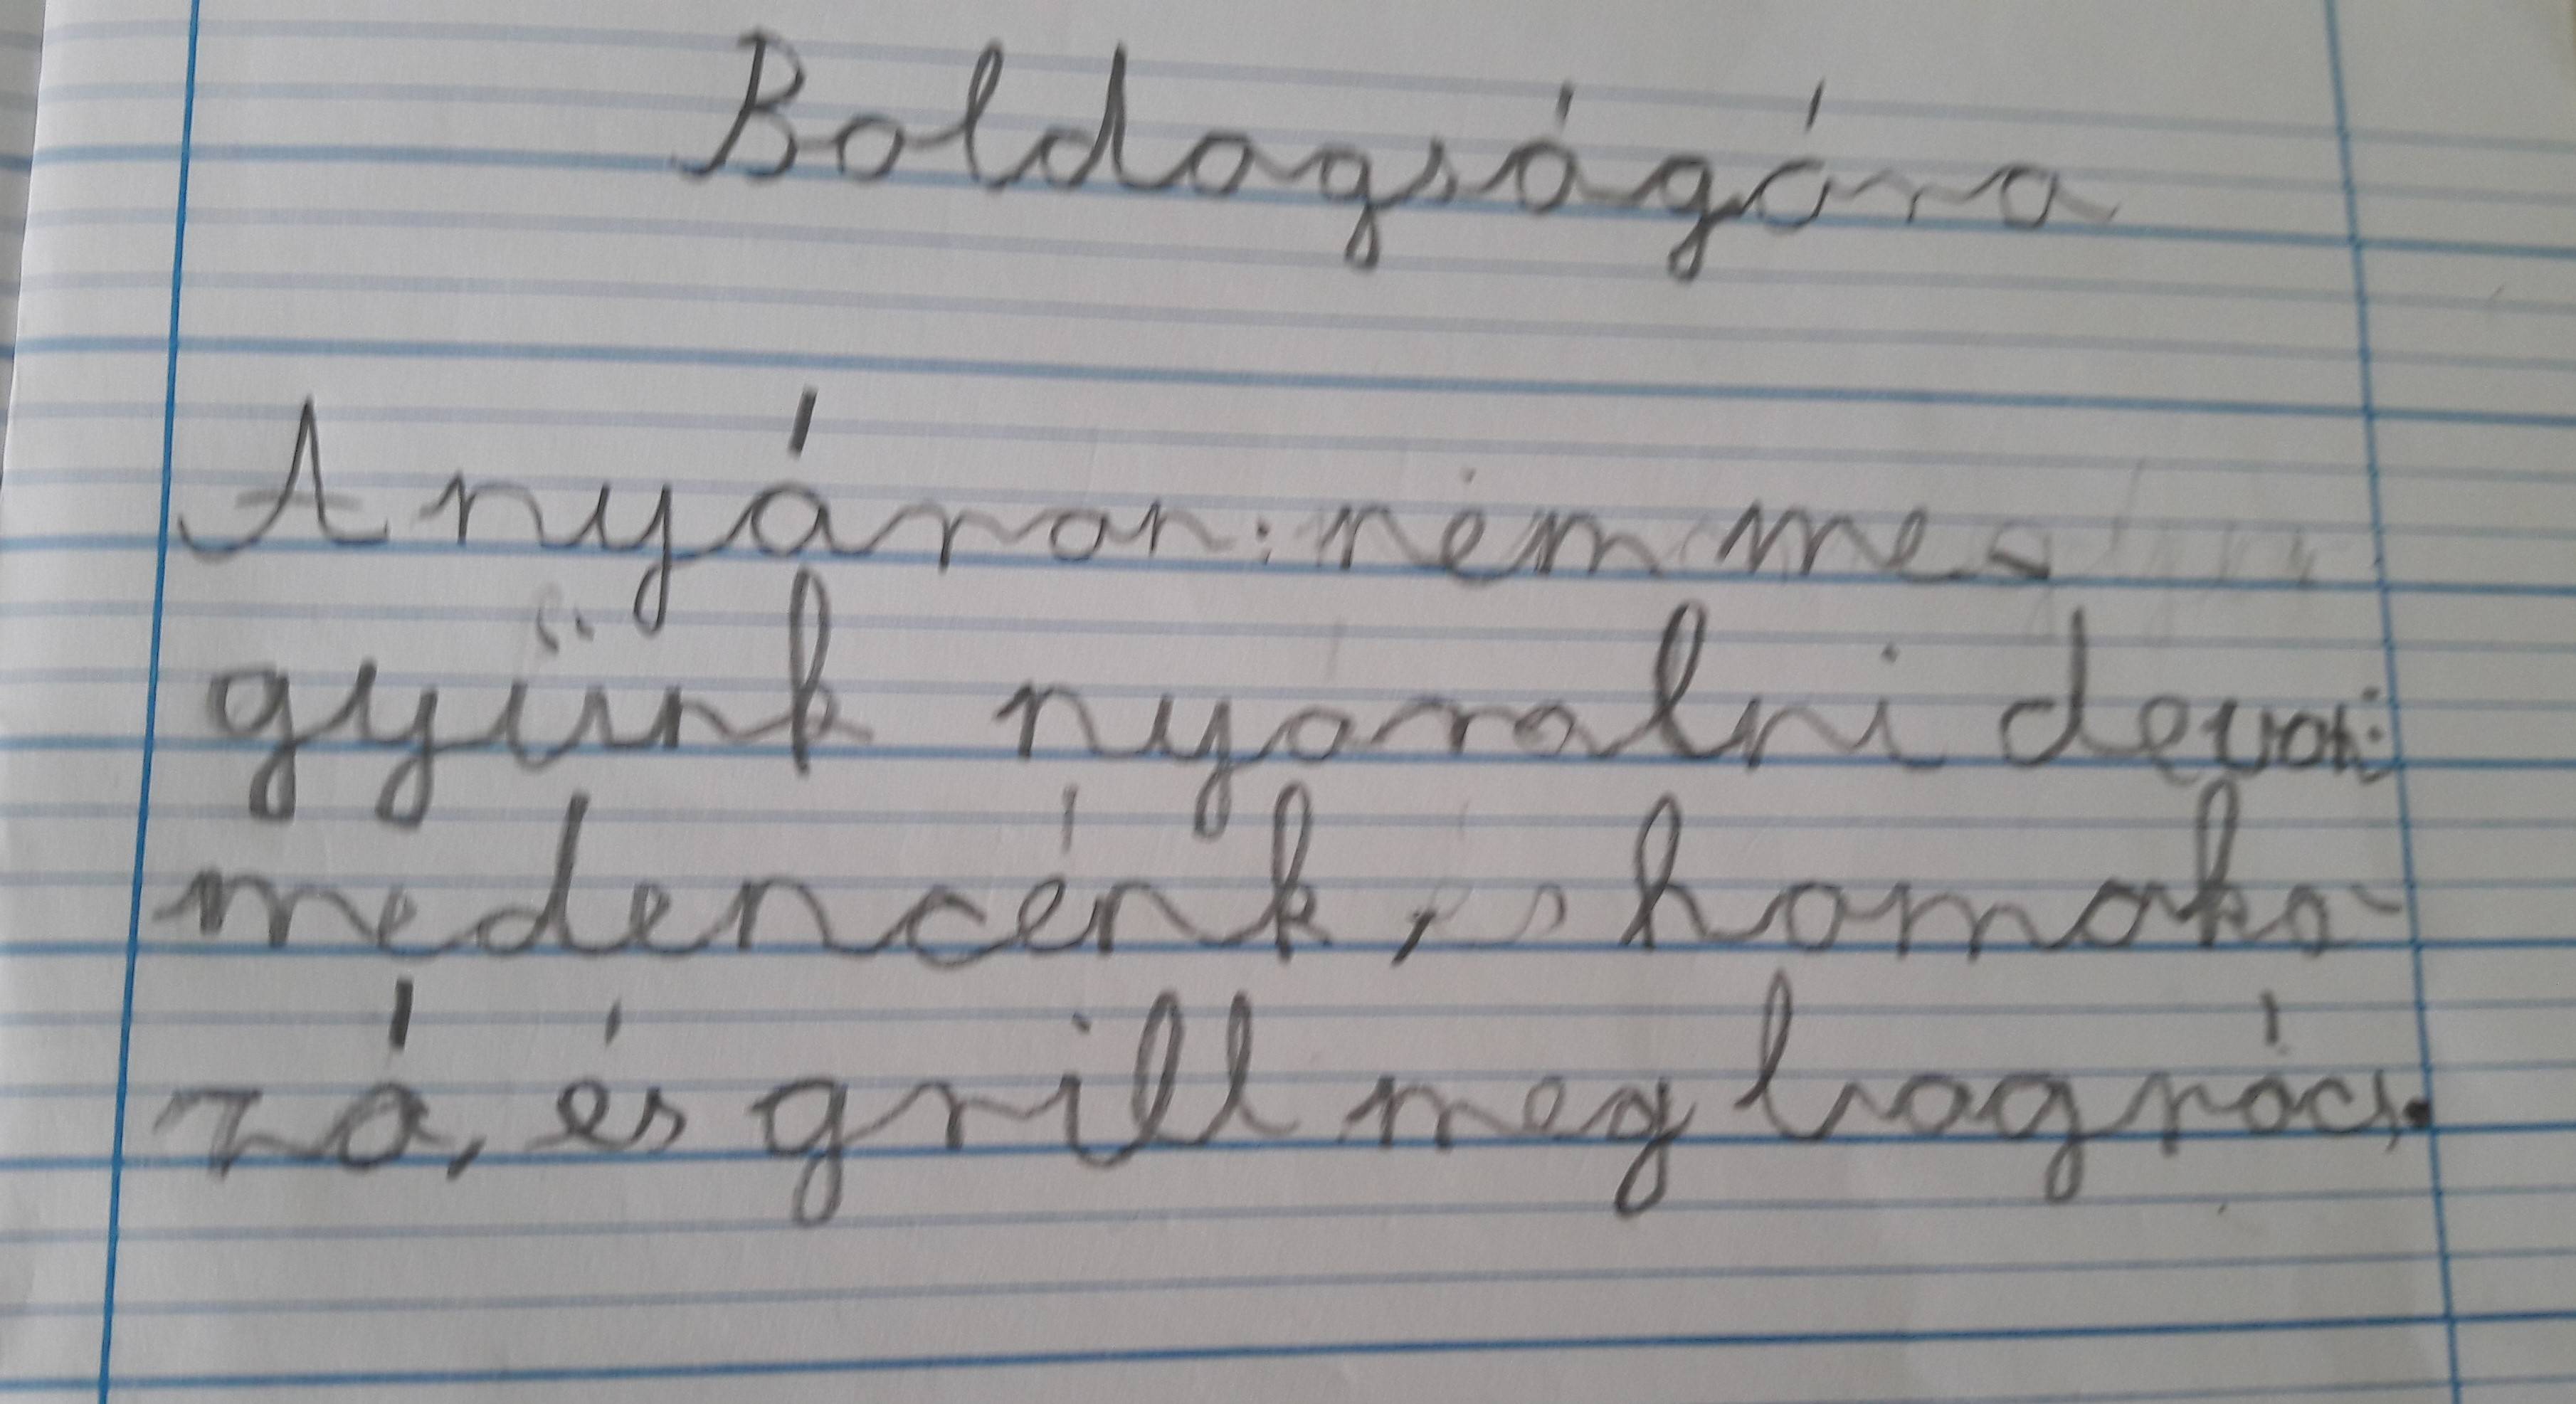 Boldogságóra
A nyáron: nem me-
gyünk nyaralni de van:
medencénk, homoko-
zó, és grill meg bogrács.